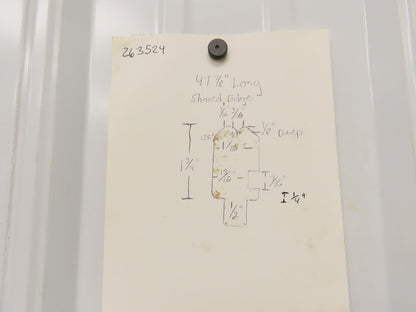 263524
47 7/8" Long
Shaved Edge
3/16 3/16
1/8" Deep
135°
1 3/4"
1/2"
1/4"